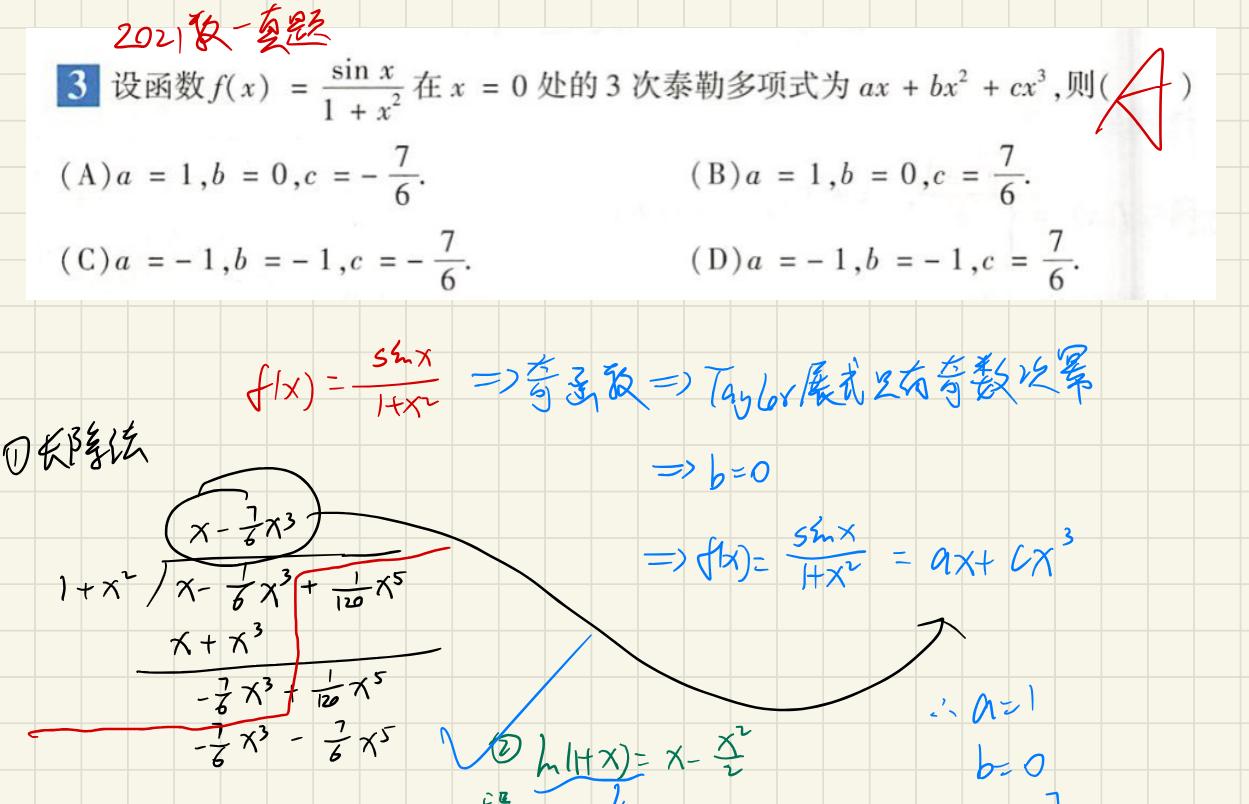 2021数一真题
3 设函数f(x) = \frac{\sin x}{1 + x^2} 在 x = 0 处的 3 次泰勒多项式为 ax + bx² + cx³,则( A )
(A)a = 1,b = 0,c = -\frac{7}{6}.
(B)a = 1,b = 0,c = \frac{7}{6}.
(C)a = -1,b = -1,c = -\frac{7}{6}.
(D)a = -1,b = -1,c = \frac{7}{6}.
f(x) = \frac{sin x}{1+x²} ⇒ 奇函数 ⇒ Taylor展式只有奇数次幂
①长除法
⇒ b=0
x - \frac{7}{6}x³
⇒ f(x) = \frac{sin x}{1+x²} = ax + cx³
1+x² ) x - \frac{1}{6}x³ + \frac{1}{120}x⁵
x + x³
-\frac{7}{6}x³ + \frac{1}{120}x⁵
-\frac{7}{6}x³ - \frac{7}{6}x⁵
∴ a=1
② ln(1+x) = x - \frac{x²}{2}
b=0